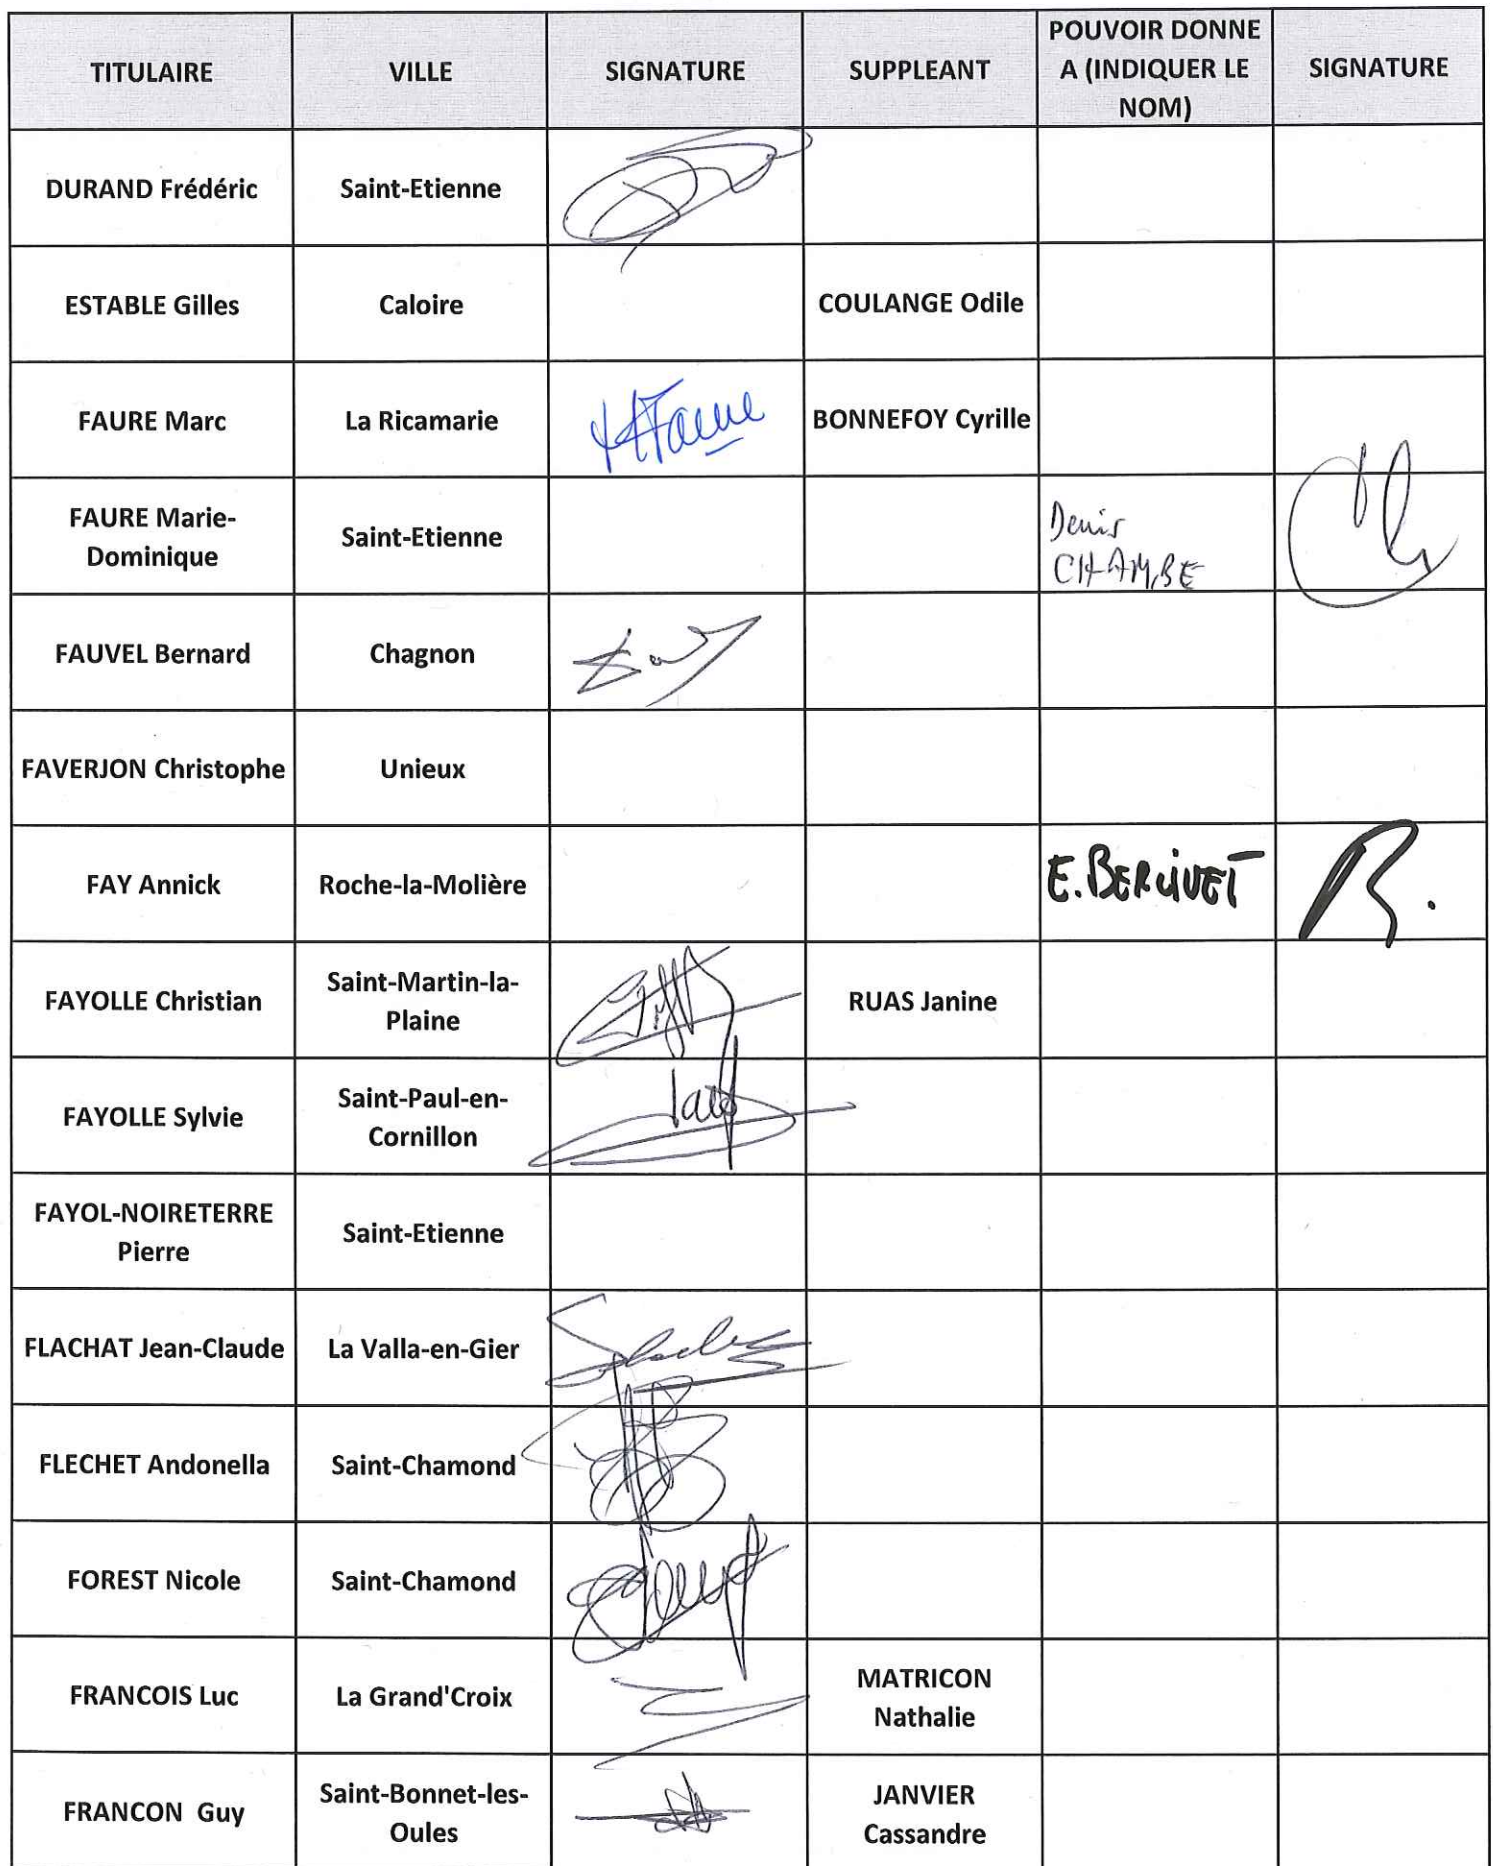 TITULAIRE
VILLE
SIGNATURE
SUPPLEANT
POUVOIR DONNE
A (INDIQUER LE
NOM)
SIGNATURE
DURAND Frédéric
Saint-Etienne
ESTABLE Gilles
Caloire
COULANGE Odile
FAURE Marc
La Ricamarie
BONNEFOY Cyrille
FAURE Marie-
Dominique
Saint-Etienne
Denis
CHAMBE
FAUVEL Bernard
Chagnon
FAVERJON Christophe
Unieux
FAY Annick
Roche-la-Molière
E. BERLIVET
FAYOLLE Christian
Saint-Martin-la-
Plaine
RUAS Janine
FAYOLLE Sylvie
Saint-Paul-en-
Cornillon
FAYOL-NOIRETERRE
Pierre
Saint-Etienne
FLACHAT Jean-Claude
La Valla-en-Gier
FLECHET Andonella
Saint-Chamond
FOREST Nicole
Saint-Chamond
FRANCOIS Luc
La Grand'Croix
MATRICON
Nathalie
FRANCON Guy
Saint-Bonnet-les-
Oules
JANVIER
Cassandre